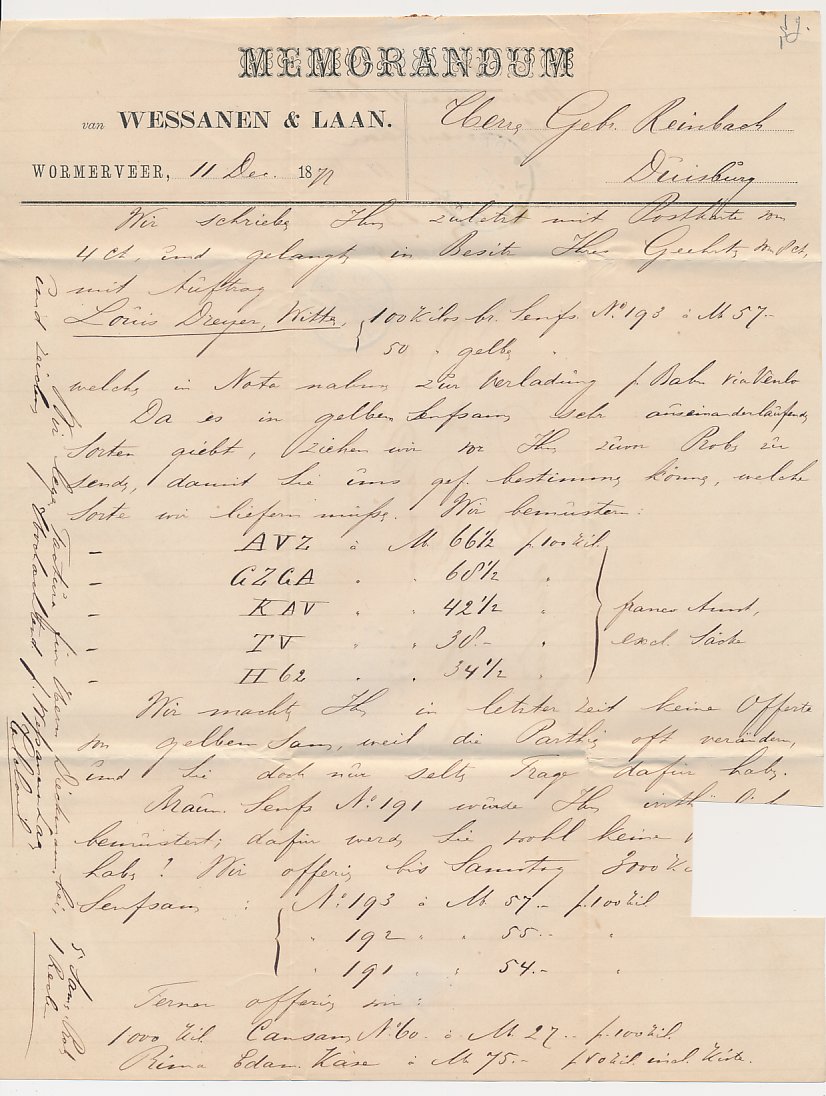 MEMORANDUM
van WESSANEN & LAAN.
Herrn Gebr. Reinbach
WORMERVEER, 11 Dec. 18
Duisburg
Wir schrieben Ihn zuletzt mit Postkarte von
4 ct, und gelangten in Besitz Ihres Geehrten von 8 ct,
mit Auftrag
Louis Dreyer, Witten, 100 Kilos br. Senfs. No. 193 à M 57.-
50 " gelben "
welche in Nota nahmen zur Verladung p. Bahn via Venlo
Da es in gelben Senfsamen sehr auseinanderlaufende
Sorten giebt, ziehen wir vor Ihn zuvor Proben zu
senden, damit Sie uns gef. bestimmen können, welche
Sorte wir liefern müssen. Wir bemustern:
- AVZ à M. 66 1/2 p. 100 Kil.
- GZGA " " 68 1/2 "
- KAV " " 42 1/2 " franco
- TV " " 38.- " excl. Säcke
- H62 " " 34 1/2 "
Wir machten Ihn in letzter Zeit keine Offerte
von gelben Samen, weil die Parthien oft verändern,
und Sie doch nur selten Frage dafür haben.
Braun. Senfs No. 191 wurde Ihn
bemustert; dafür werden Sie wohl keine
haben? Wir offeriren bis Samstag 3000 K
Senfsamen : No. 193 à M 57.- p. 100 Kil
" 192 " " 55.- "
" 191 " " 54.- "
Ferner offeriren wir:
1000 Kil Cansamen No. 60. à M 27.- p. 100 Kil.
Prima Edam. Käse à M 75.- p. 50 Kil. incl. Kiste.
Wir legen Factura für Herrn bei,
und zeichnen Hochachtend p. Wessanen & Laan
5 Samen Prob
1